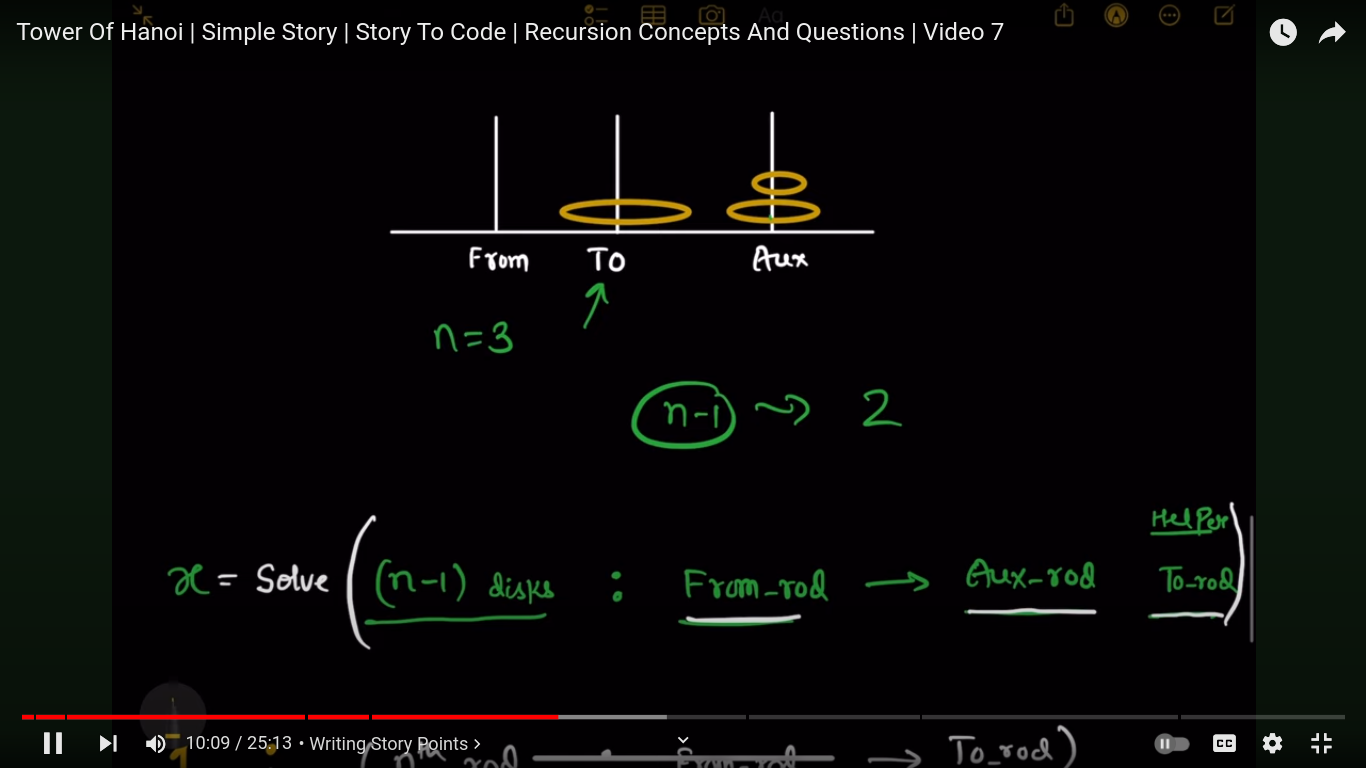 Tower Of Hanoi | Simple Story | Story To Code | Recursion Concepts And Questions | Video 7
Aa
From To Aux
n=3
n-1 ⤳ 2
Helper
x = Solve ( (n-1) disks : From_rod → Aux-rod To_rod )
1 : (nth rod : From_rod → To_rod)
10:09 / 25:13 • Writing Story Points >
CC